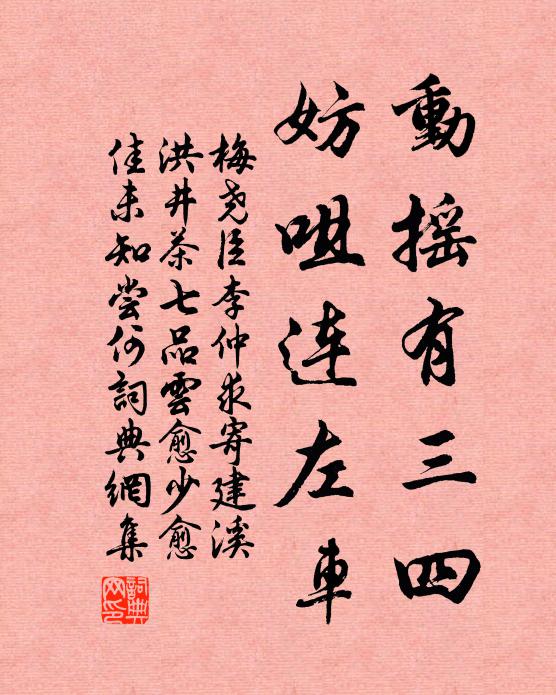 動摇有三四
妨咀连左車
梅尧臣李仲求寄建溪
洪井茶七品雲愈少愈
佳未知尝何詞典網集
詞典